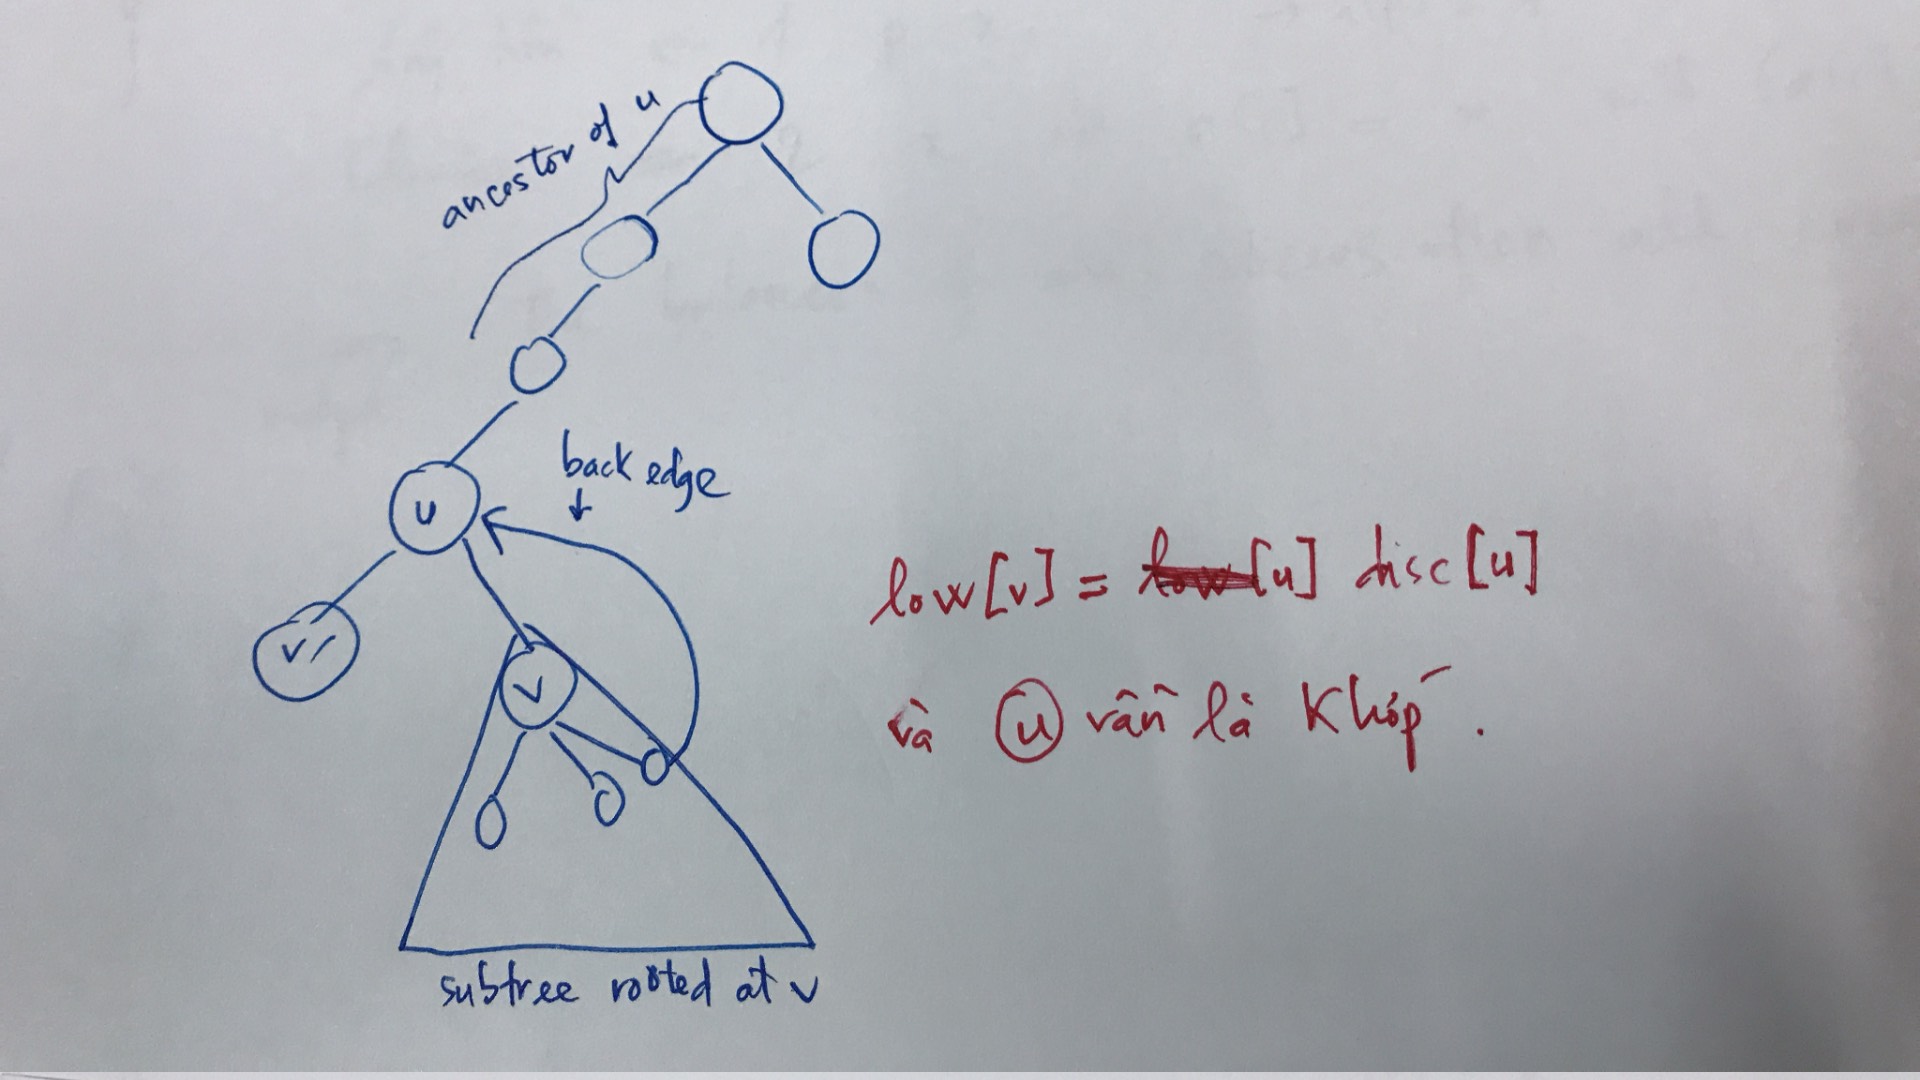 ancestor of u
back edge
u
v'
v
subtree rooted at v
low[v] = low[u] disc[u]
và u vẫn là Khớp.